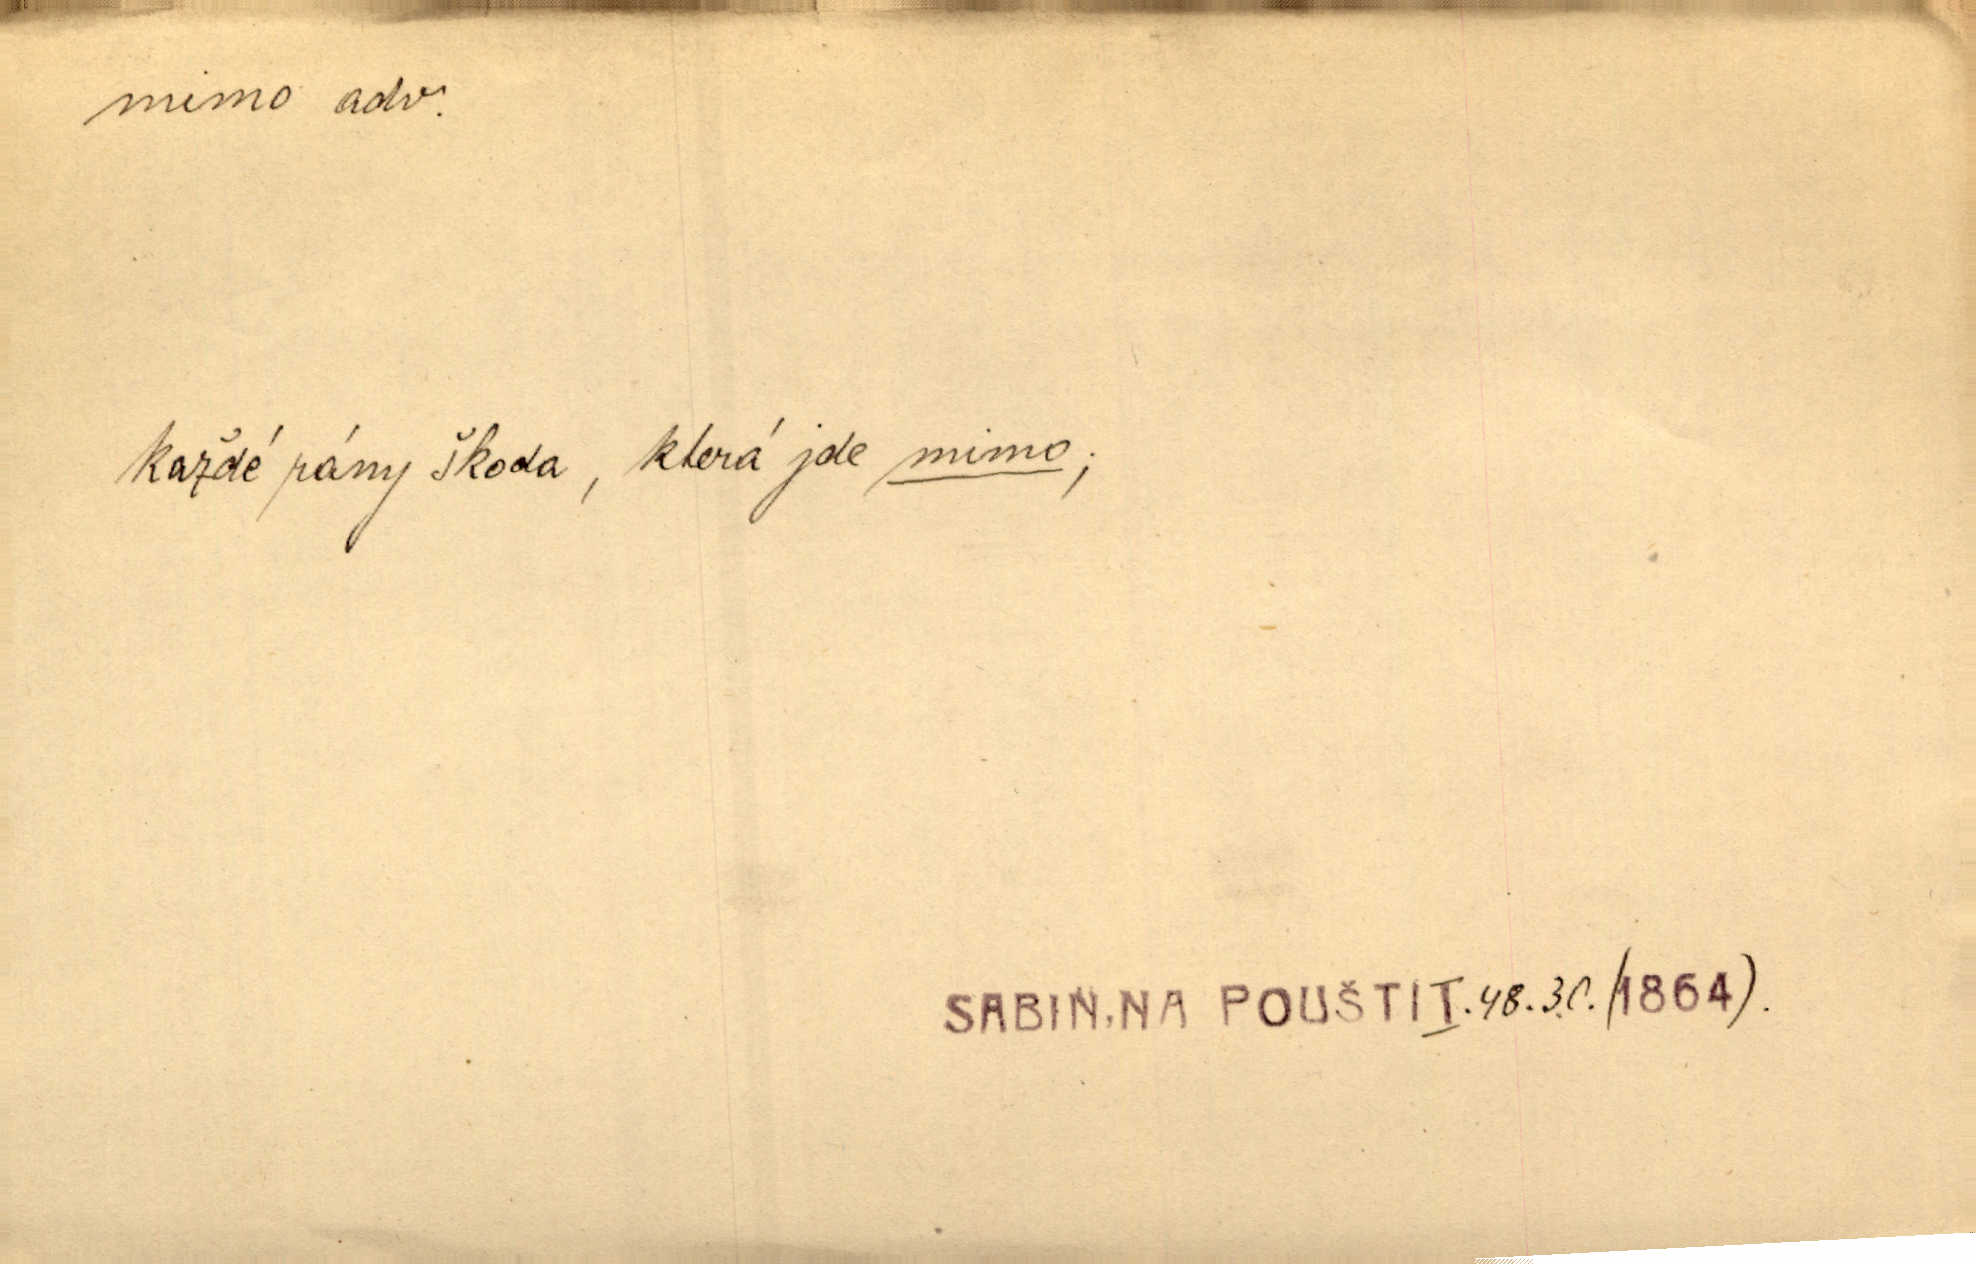 mimo adv.
každé rány škoda, která jde mimo;
SABIN, NA POUŠTI I. 48. 30. (1864).